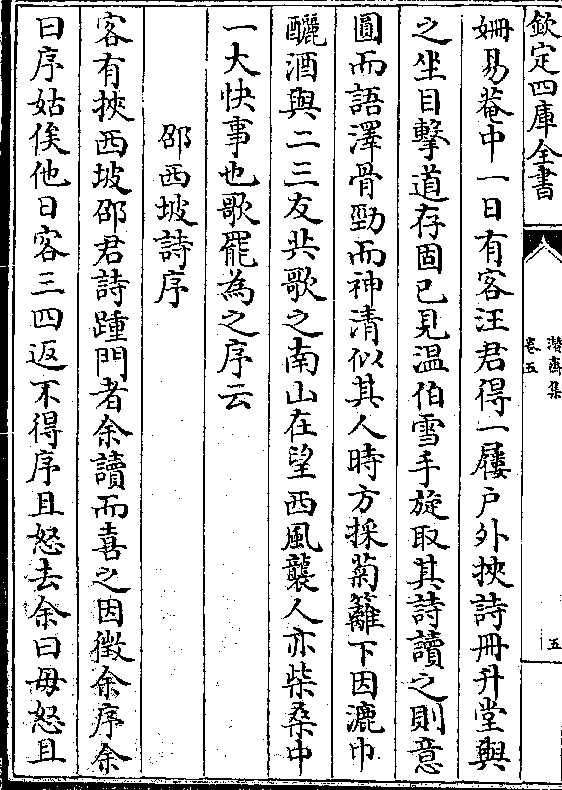 欽定四庫全書
潛齋集
卷五
五
姍易菴中一日有客汪君得一屨戶外挾詩冊升堂與
之坐目擊道存固已見溫伯雪手旋取其詩讀之則意
圓而語澤骨勁而神清似其人時方採菊籬下因漉巾
釃酒與二三友共歌之南山在望西風襲人亦柴桑中
一大快事也歌罷為之序云
邵西坡詩序
客有挾西坡邵君詩踵門者余讀而喜之因徵余序余
曰序姑俟他日客三四返不得序且怒去余曰毋怒且